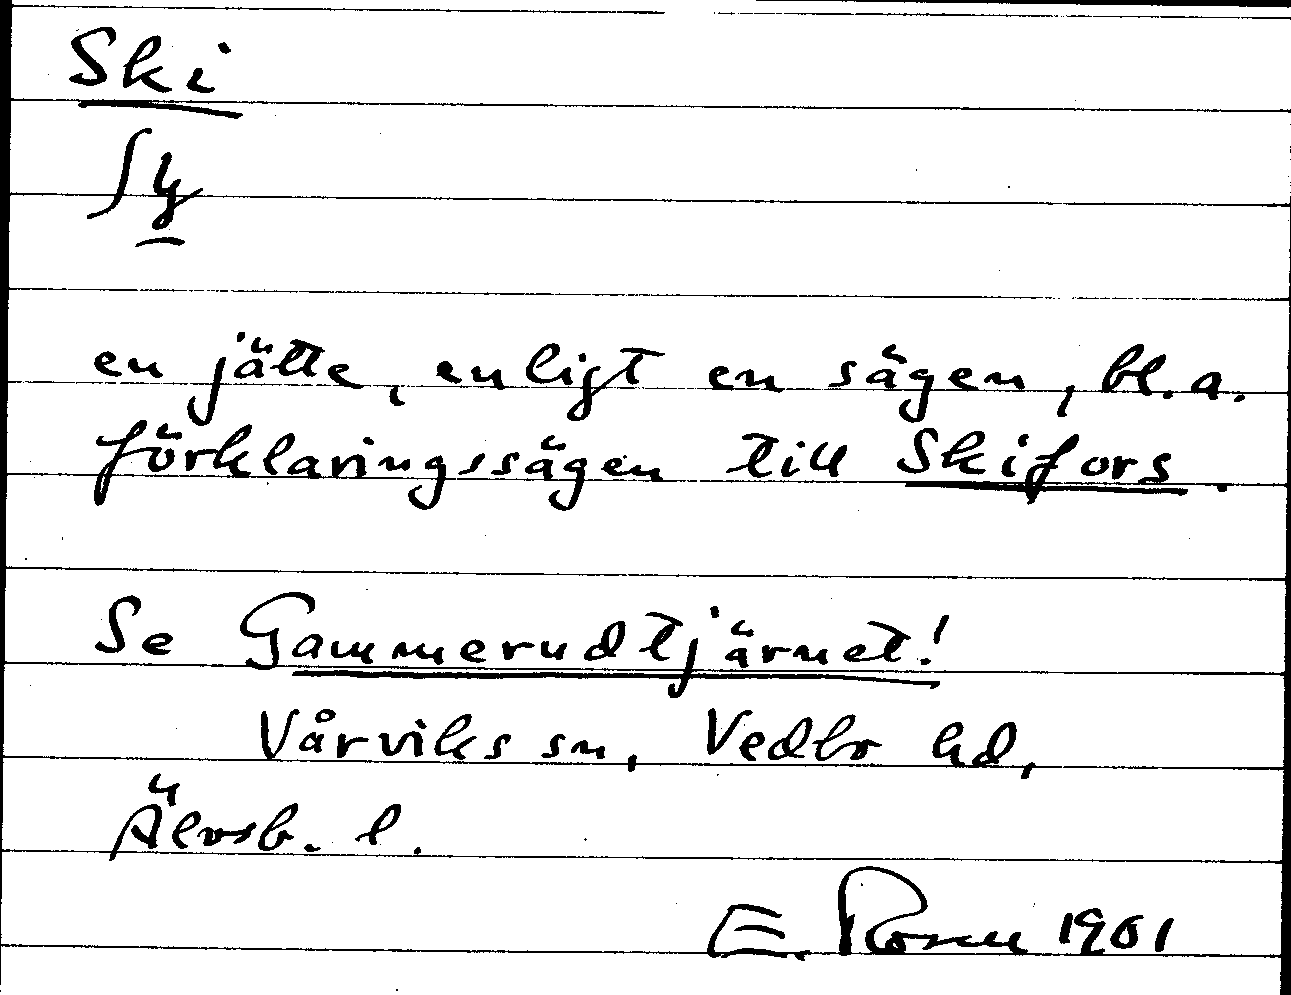 Ski
en jätte, enligt en sägen, bl.a.
förklaringssägen till Skifors.
Se Gammerudtjärnet!
Vårviks sn, Vedbo hd,
Älvsb. l.
E. Rosén 1961